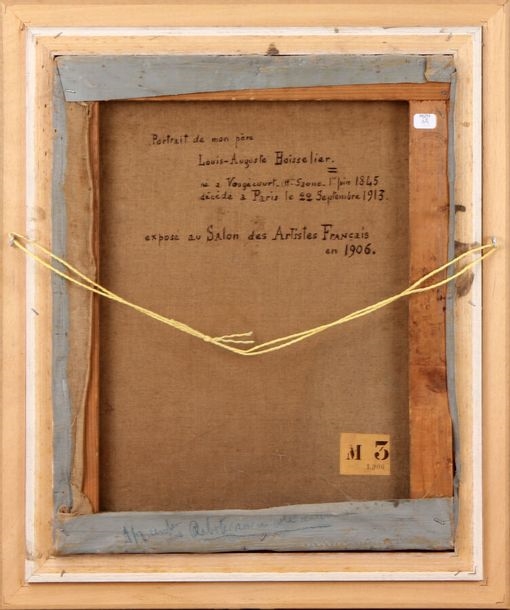 Portrait de mon père
Louis-Auguste Boisselier.
né à Vougécourt. Hte-Saone. 1er juin 1845
décédé à Paris le 22 Septembre 1913.
exposé au Salon des Artistes Français
en 1906.
M 3
1.906